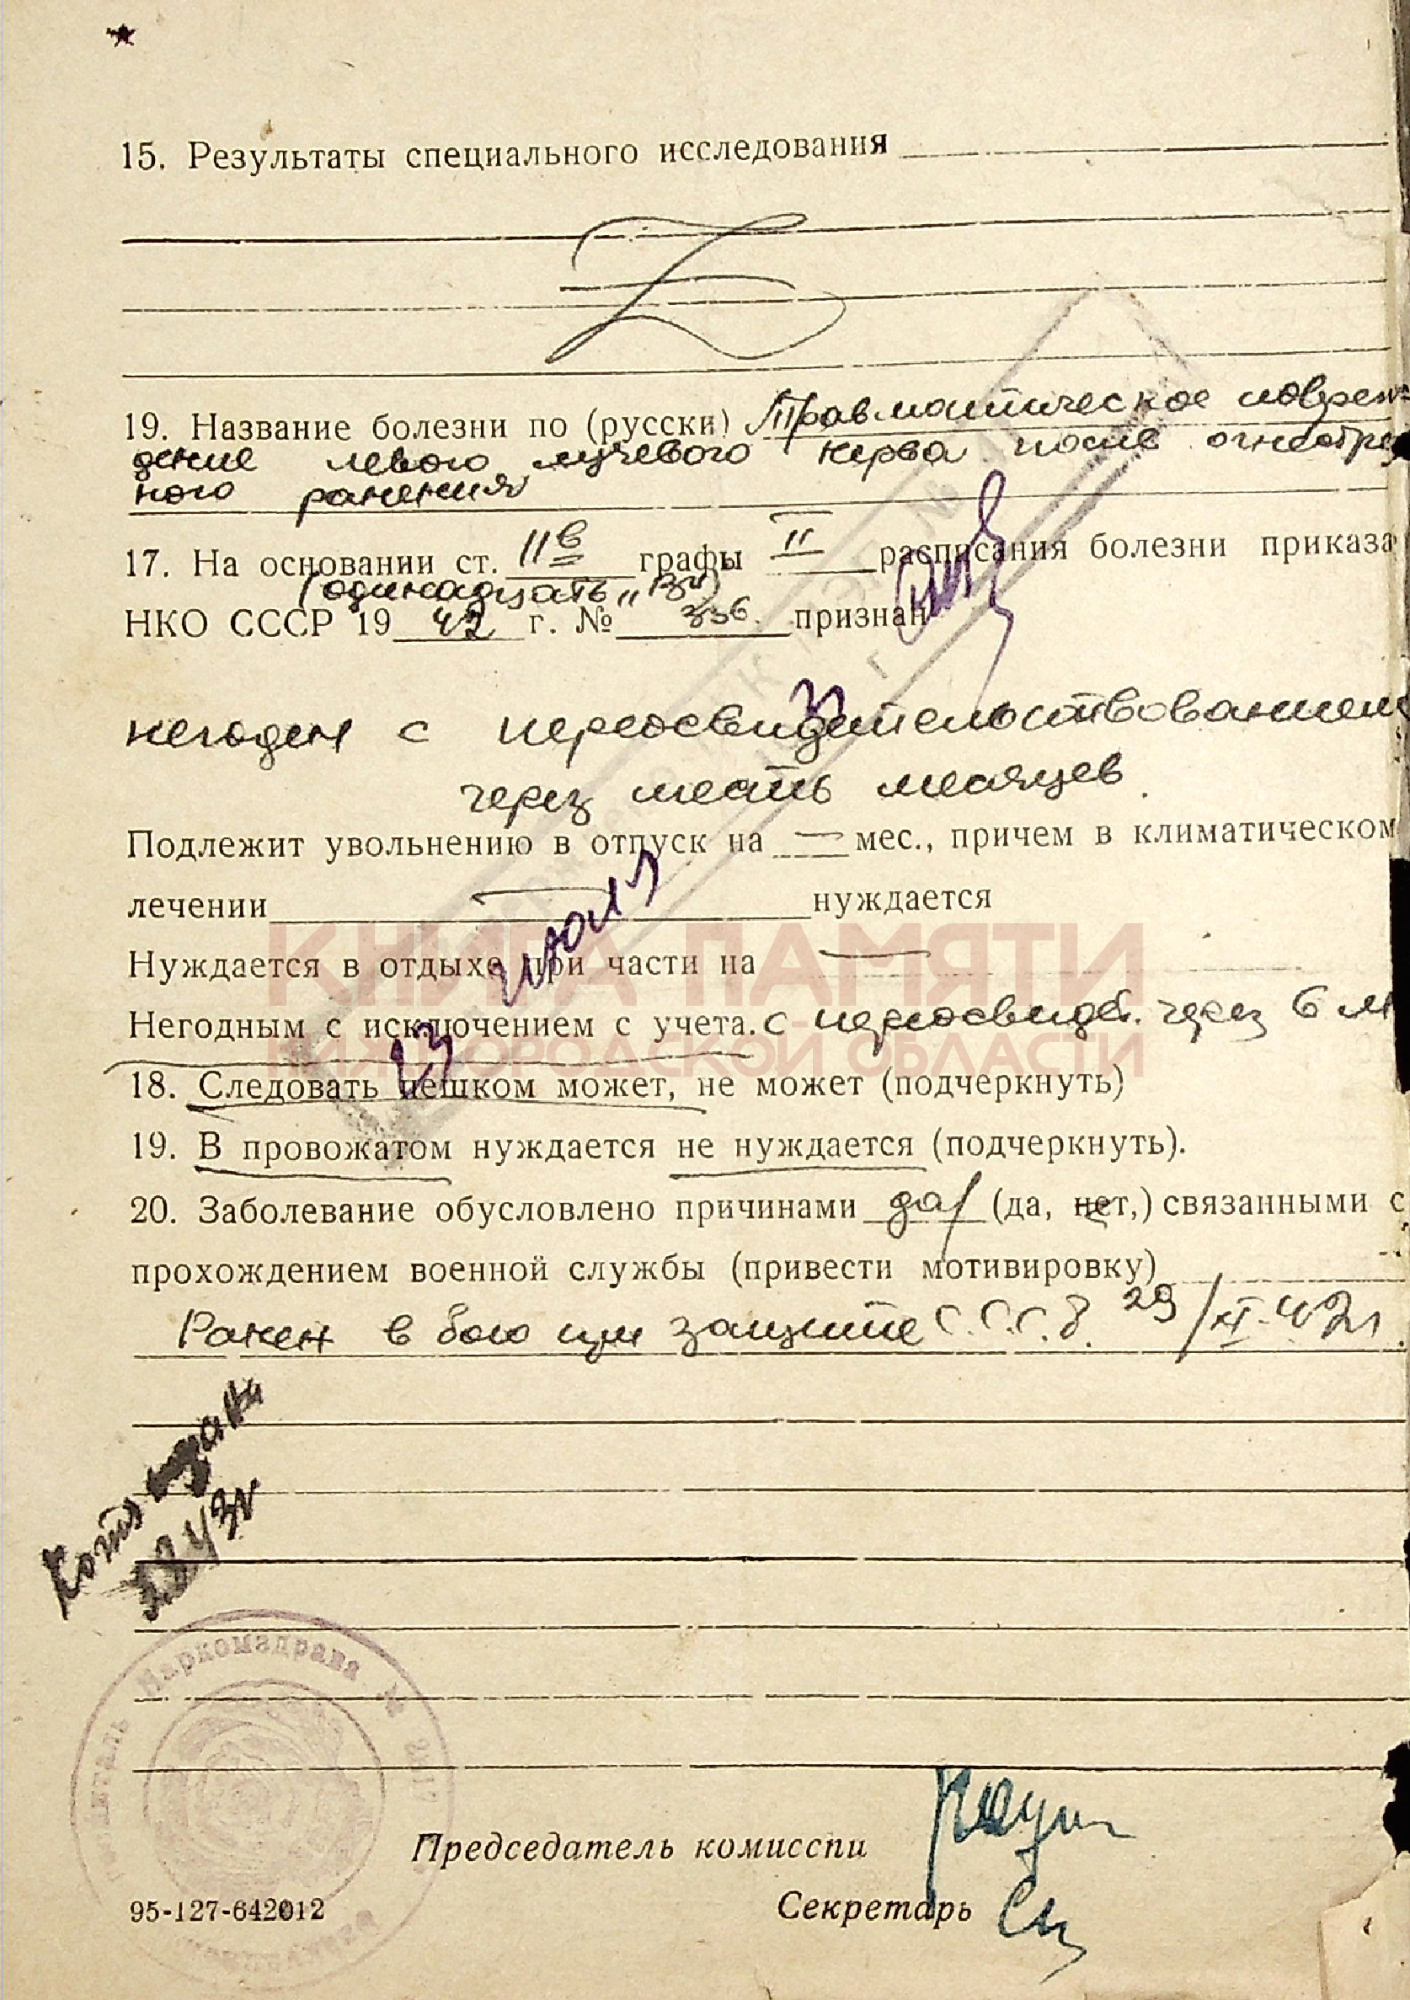 15. Результаты специального исследования
19. Название болезни по (русски) Травматическое повреж-
дение левого лучевого нерва после огнестрел
ного ранения
17. На основании ст. 11в графы II расписания болезни приказа
(одинадцать „в“)
НКО СССР 19 42 г. № 336 признан
негоден с переосвидетельствованием
через шесть месяцев.
Подлежит увольнению в отпуск на — мес., причем в климатическом
лечении — нуждается
Нуждается в отдыхе при части на —
Негодным с исключением с учета. с переосвид. через 6 м
23 июля
КНИГА ПАМЯТИ
НИЖЕГОРОДСКОЙ ОБЛАСТИ
18. Следовать пешком может, не может (подчеркнуть)
19. В провожатом нуждается не нуждается (подчеркнуть).
20. Заболевание обусловлено причинами да (да, нет,) связанными с
прохождением военной службы (привести мотивировку)
Ранен в бою при защите С.С.С.Р. 29/XI-42г.
Наркомздрава №
Председатель комисспи
Секретарь
95-127-642012